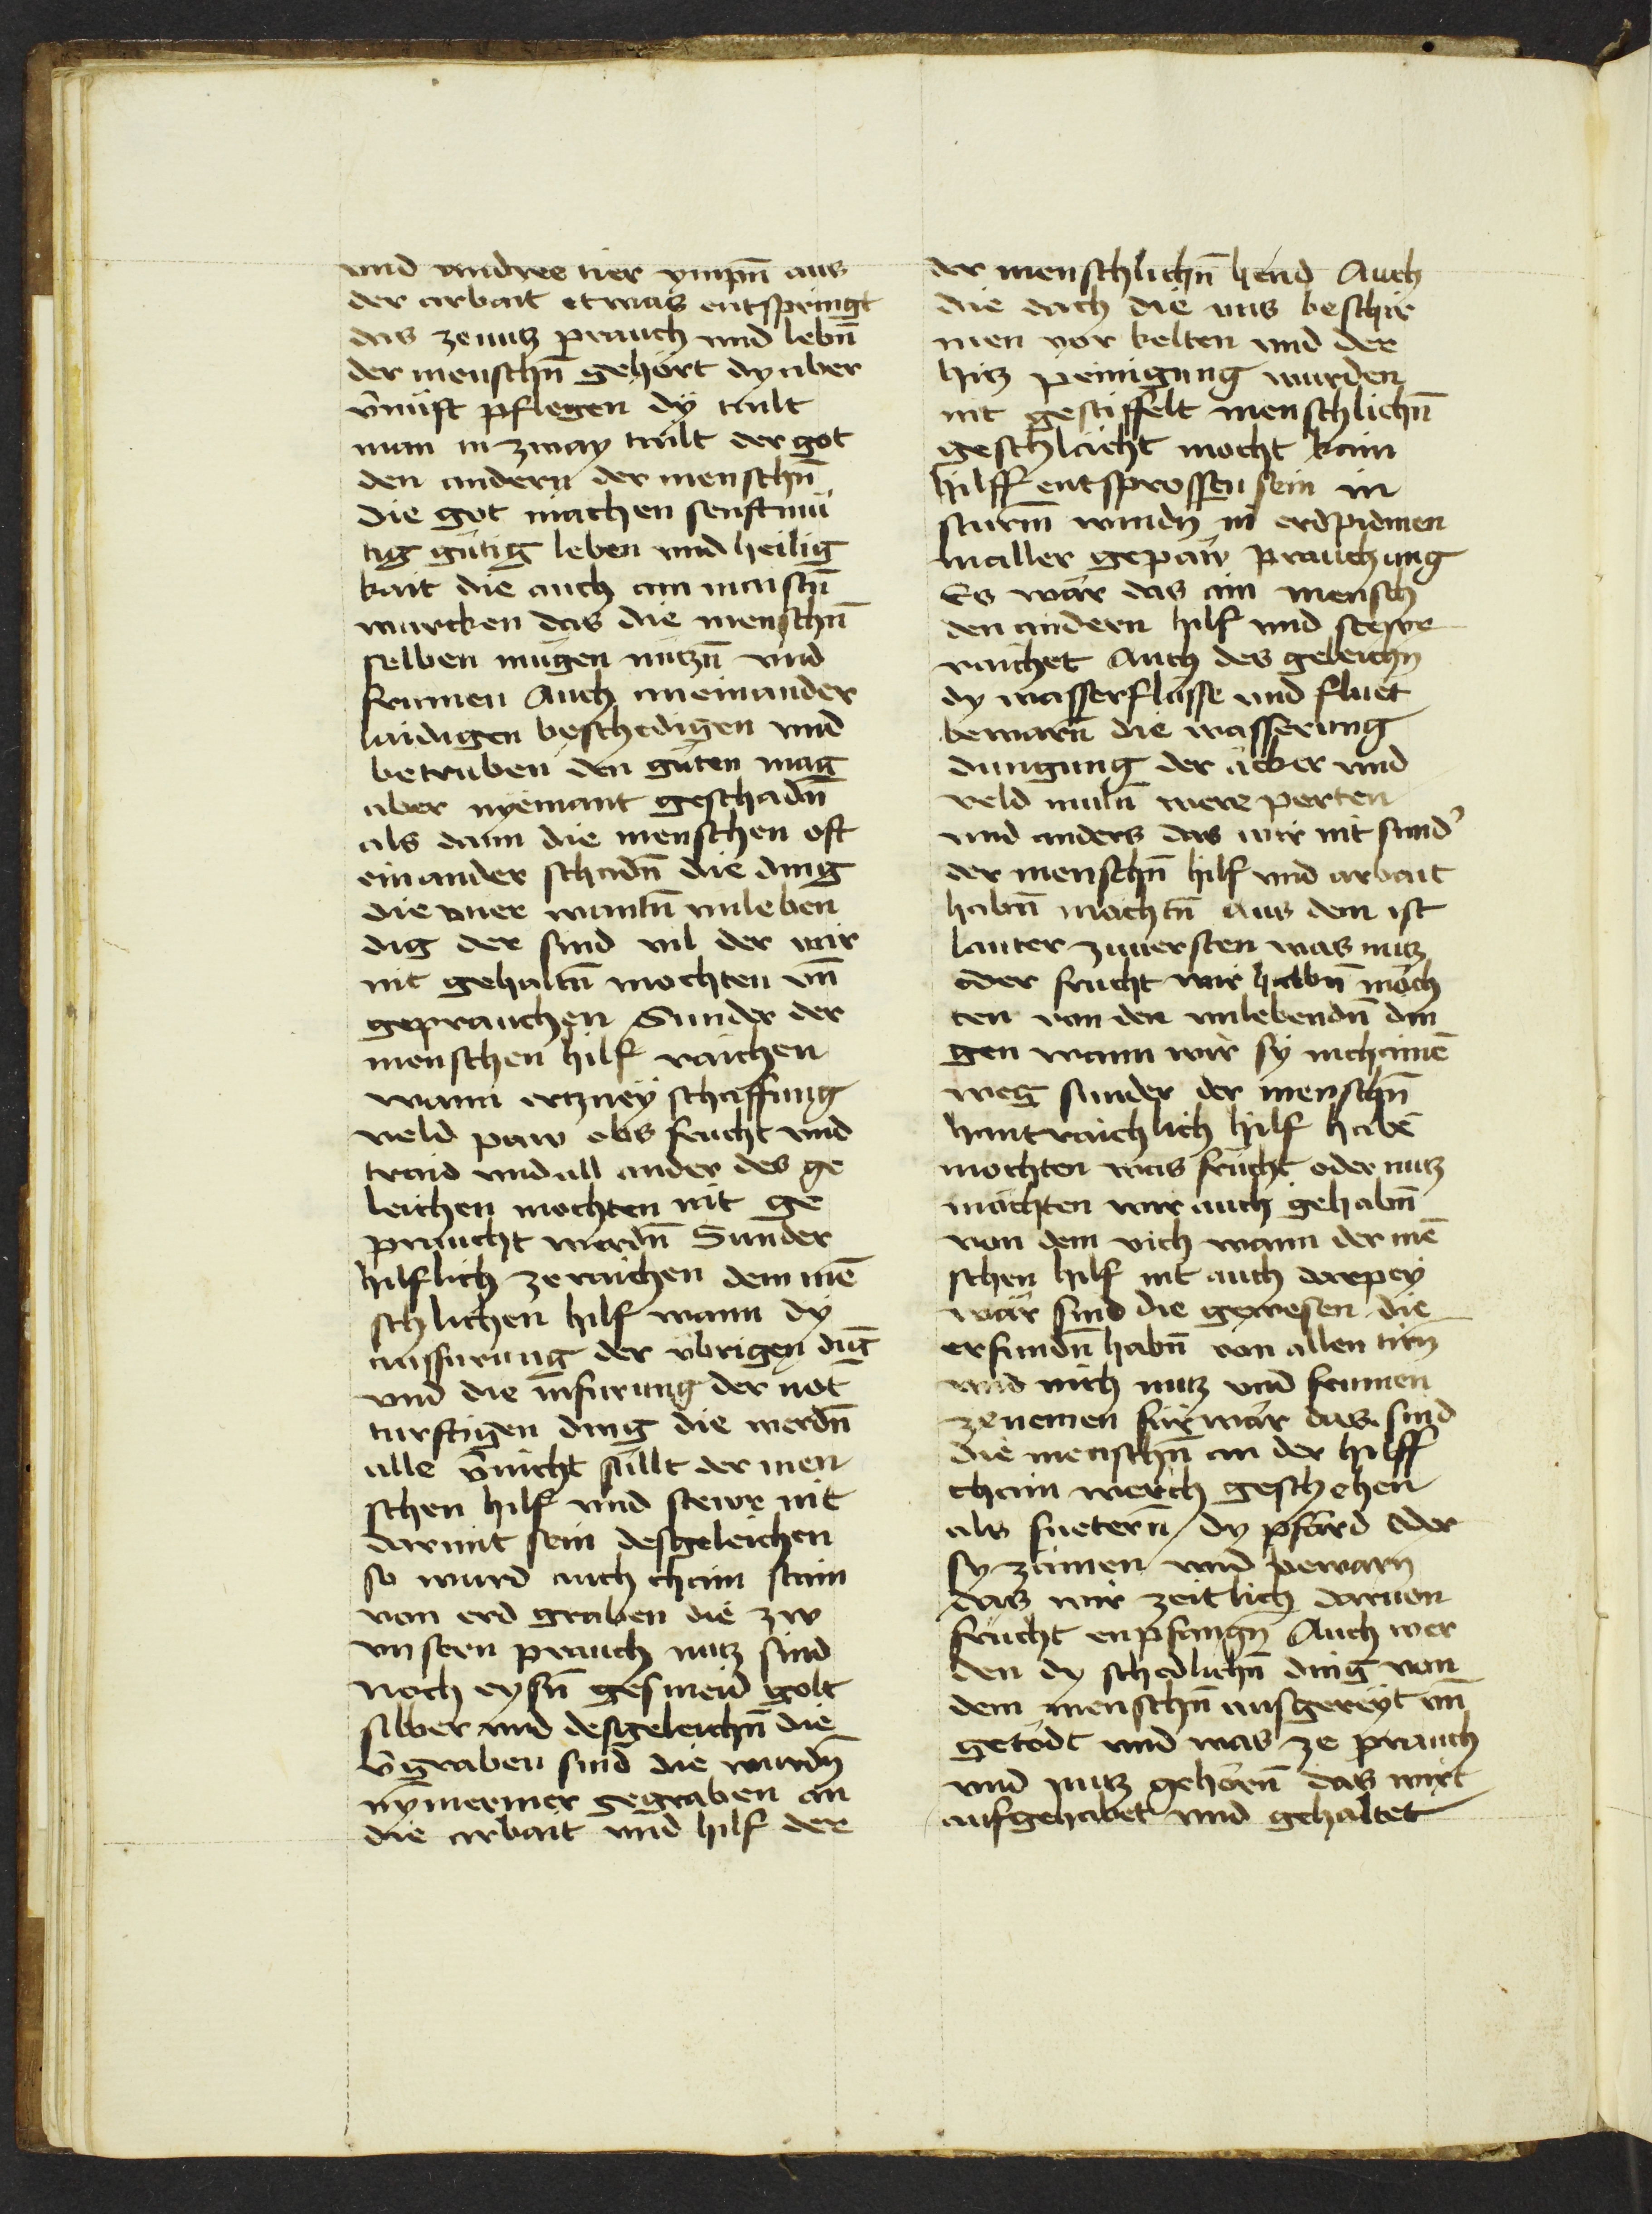 und andree tier ympn̄ aus
der arbait etwas entspringt
das ze nutz prauch und lebn̄
der menschn̄ gehört dy aber
v̄nuft pflegen dÿ tailt
man in zway tailt der got
den andern der menschn̄
die got machen senftmü
tig gütig leben und heilig
kait die auch am menschn̄
wurcken das die menschn̄
selben mügen nutzn̄ und
frumen Auch aneinander
laidigen beschedigen und
betruben den güten mag
aber nyemant geschadn̄
als dann die menschen oft
einander schadn̄ die ding
die aber unleben
dig der sind vil der wir
nit gehaltn̄ mochten vn̄
geprauchen Sunder der
menschen hilf raichen
wann ertzney schaffung
veld paw obs frucht und
traid und all ander des ge
leichen mochten nit ge
praucht werdn̄ Sunder
hilflich ze raichen dem mē
schlichen hilf wann dÿ
ausfurung der übrigen dīg
und die infurung der not
turftigen ding die werdn̄
alle v̄nicht sullt der men
schen hilf und stewr nit
darmit sein desgeleichen
so wurd auch chain stain
von erd graben die zw
unsern prauch nutz sind
noch eysn̄ gesmeid golt
silber und desgeleichn̄ die
v̄graben sind die wurdn̄
nymermer gegraben an
die arbait und hilf der
der menschlichn̄ hend Auch
die dach die uns beschir
men vor kelten und der
hitz peinigung wurden
nit gestiffelt menschlichn̄
geschlächt mocht kain
hilff entsprossen sein in
sturm̄ windn̄ in erdpidmen
in aller gepaw prauchung
Es wär das ain mensch
den andern hilf und stewr
raichet Auch des geleichn̄
dy wasserflüsse und fluet
bewarn̄ die wasserung
dungung der äcker und
veld muln̄ were porten
und anders das wir nit sund'
der menschn̄ hilf und arbait
habn̄ möchtn̄ Aus dem ist
lauter zuuersten was nutz
oder frucht wir habn̄ möch
ten von den unlebendn̄ din
gen wann wir sy in chainē
weg sunder der menschn̄
hantraichlich hilf habē
mochten was frücht oder nutz
möchten wir auch gehabn̄
von dem vich wann der mē
schen hilf nit auch darpey
wär sind die gewesen die
erfundn̄ habn̄ von allen tirn̄
und vich nutz und frumen
ze nemen fürwär das sind
die menschn̄ an der hilff
chain werch geschehen
als fuetern̄ dy pfärd oder
sy zämen und pewarn̄
das wir zeitlich daruon
frucht enpfangn̄ Auch wer
den dy schedlichn̄ ding von
dem menschn̄ ausgereyt vn̄
getödt und was ze prauch
und nutz gehörn̄ das wirt
aufgehabet und gehaltet